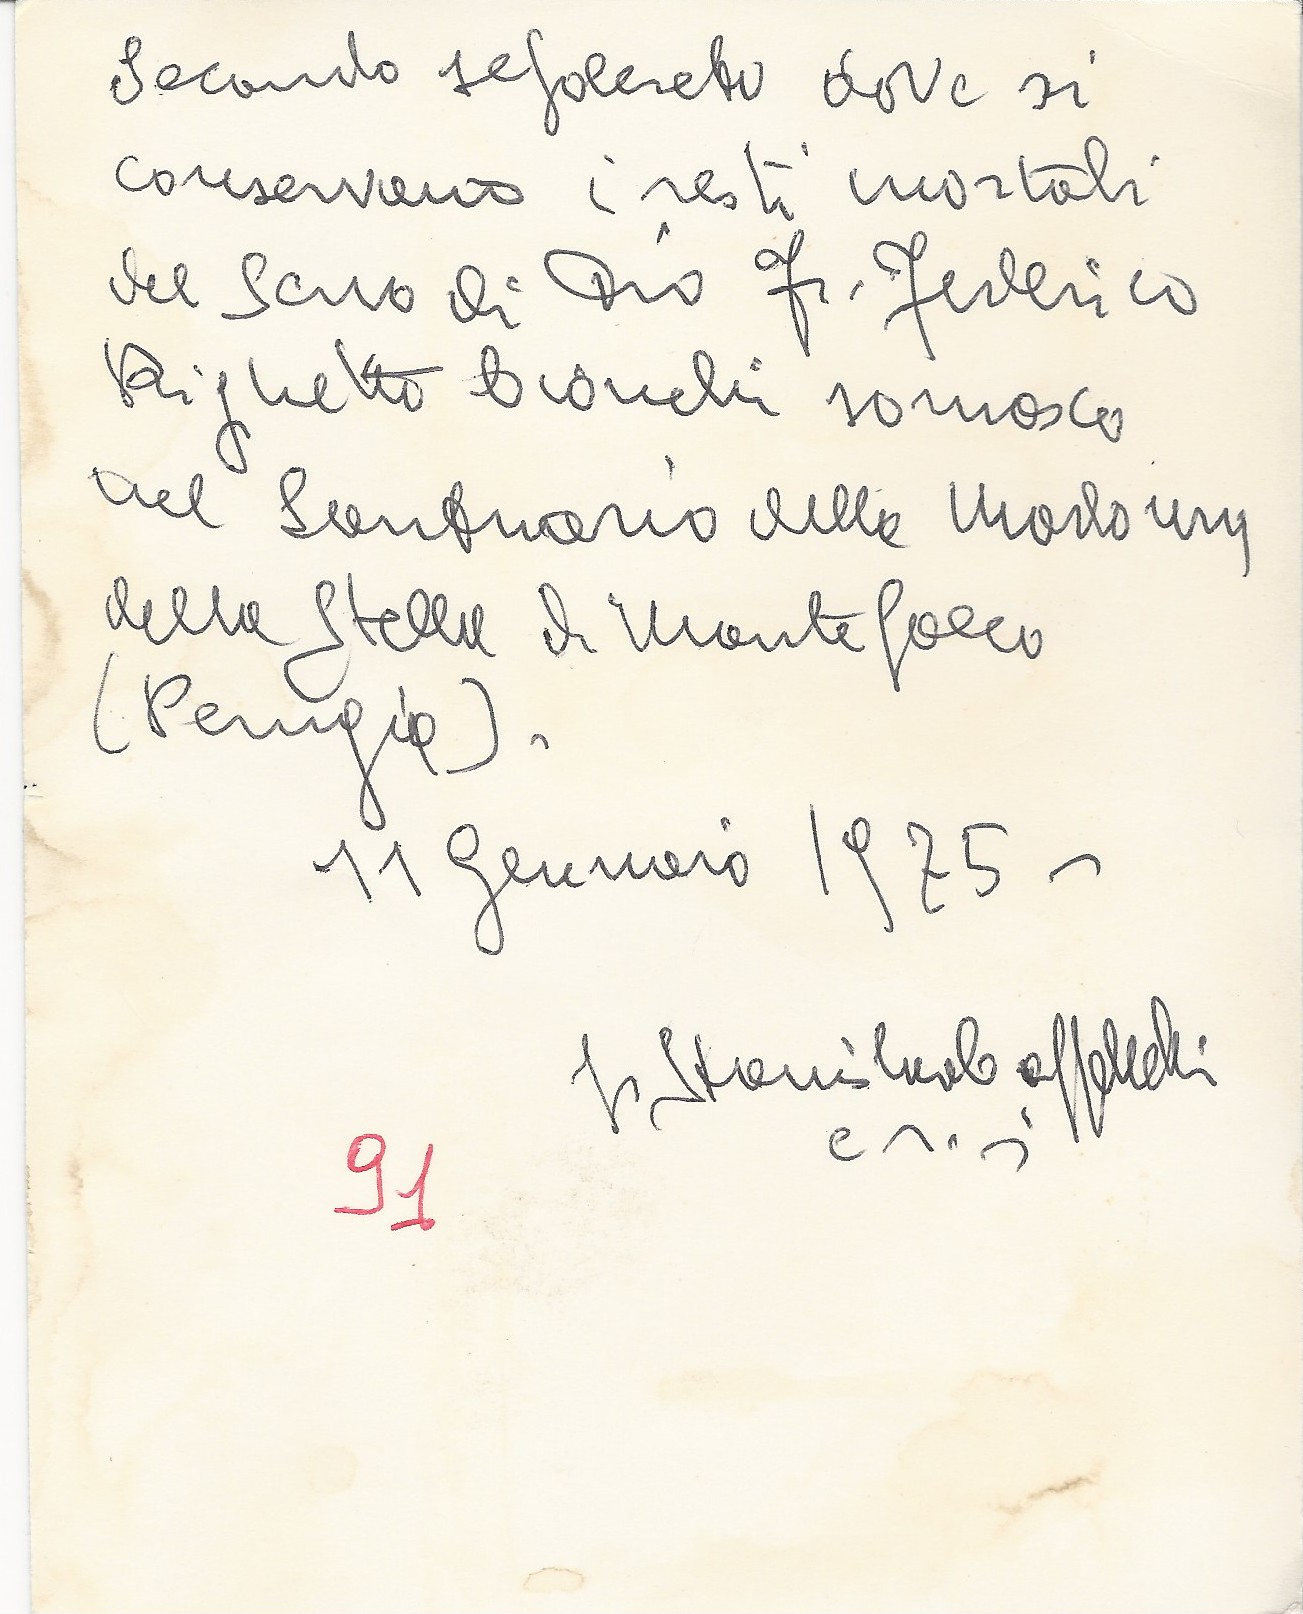 Secondo sepolcreto dove si
conservano i resti mortali
del Servo di Dio Fr. Federico
Righetto Cionchi somasco
nel Santuario della Madonna
della Stella di Montefalco
(Perugia).
11 Gennaio 1975 -
Fr. Stanislao Cappelletti
c r. s
91